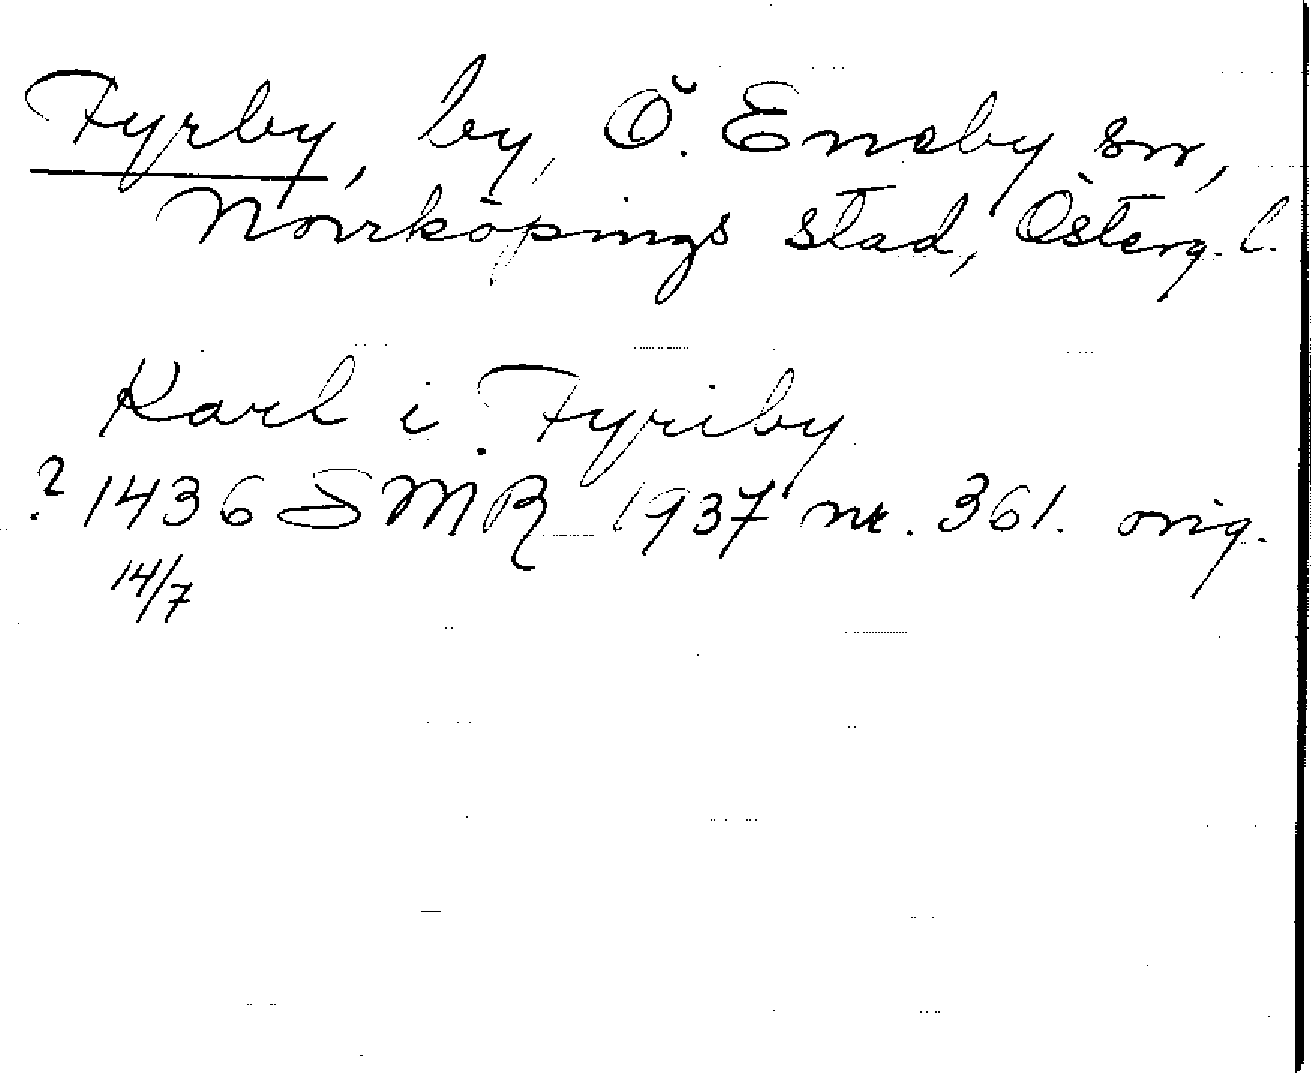 Fyrby, by, Ö. Eneby sn,
Norrköpings stad, Österg. l.
Karl i Fyriby
? 1436 SMR 1937 nr. 361. orig.
14/7